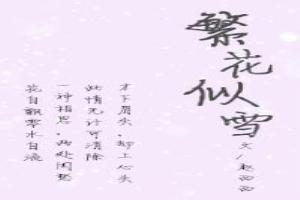 繁花似雪
文/赵西西
才下眉头，却上心头
此情无计可消除
一种相思，两处闲愁
花自飘零水自流